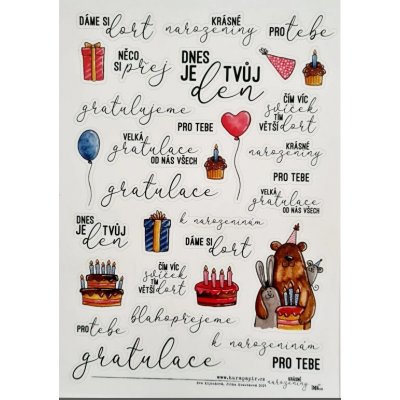 DÁME SI
dort
KRÁSNÉ
narozeniny
PRO TEBE
NĚCO
SI přej
DNES
JE TVŮJ
den
gratulujeme
ČÍM VÍC
svíček
TÍM
VĚTŠÍ dort
PRO TEBE
VELKÁ
gratulace
OD NÁS VŠECH
KRÁSNÉ
narozeniny
PRO TEBE
gratulace
VELKÁ
gratulace
OD NÁS VŠECH
DNES
JE TVŮJ
den
k narozeninám
DÁME SI
dort
ČÍM VÍC
svíček
TÍM
VĚTŠÍ dort
PRO tebe
blahopřejeme
k narozeninám
gratulace
PRO TEBE
www.kurapapir.cz
KRÁSNÉ
narozeniny